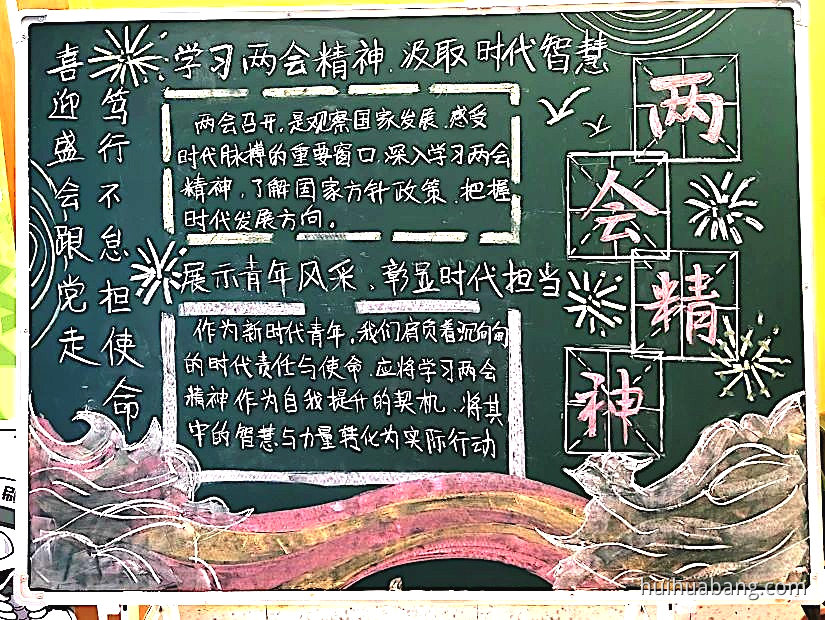 喜迎盛会跟党走
笃行不怠担使命
学习两会精神.汲取时代智慧
两会召开,是观察国家发展.感受
时代脉搏的重要窗口.深入学习两会
精神,了解国家方针政策.把握
时代发展方向。
展示青年风采.彰显时代担当
作为新时代青年,我们肩负着沉甸甸
的时代责任与使命.应将学习两会
精神作为自我提升的契机.将其
中的智慧与力量转化为实际行动
两
会
精
神
刷
huihuabang.com